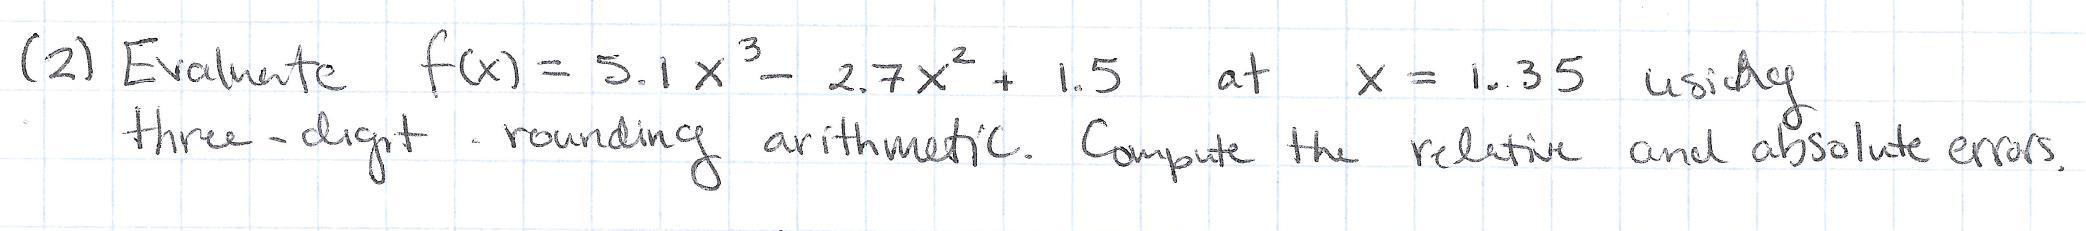 (2) Evaluate f(x) = 5.1x³ - 2.7x² + 1.5 at x = 1.35 using
three-digit rounding arithmetic. Compute the relative and absolute errors.